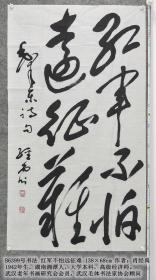 红军不怕
遠征難
毛泽东诗句
S6399号书法 红军不怕远征难 138×68cm 作者:肖经禹
1942年生、湖南湘潭人、大学本科、高级经济师、
武汉老年书画研究会会员、武汉毛体书法家协会顾问